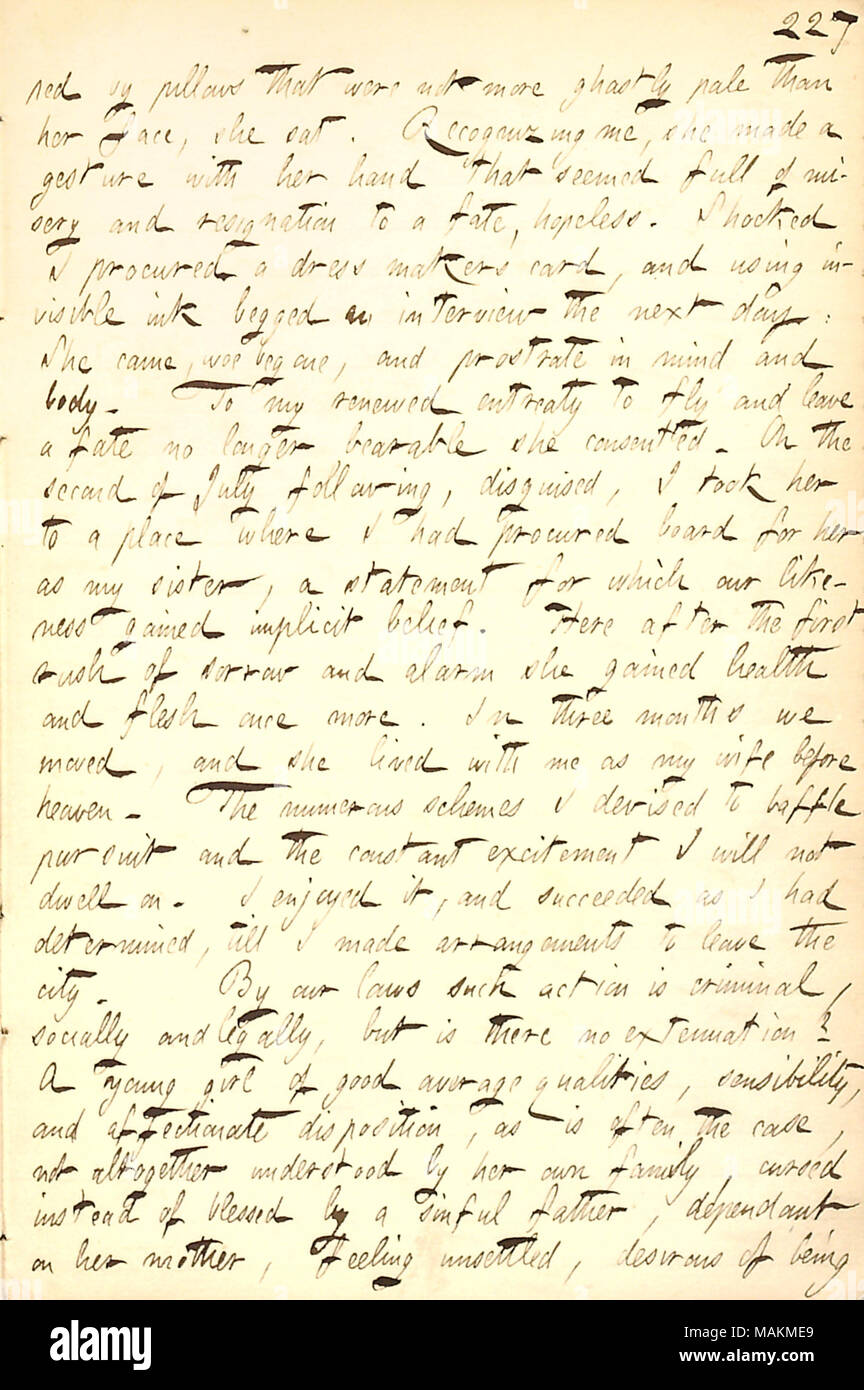 227
ped by pillows that were not more ghastly pale than
her face, she sat. Recogenizing me, she made a
gesture with her hand that seemed full of mi-
sery and resignation to a fate, hopeless. Shocked
I procured a dress makers card, and using in-
visible ink begged an interview the next day:
She came, woe begone, and prostrate in mind and
body. To my renewed entreaty to fly and leave
a fate no longer bearable she consented. On the
second of July following, disguised, I took her
to a place where I had procured board for her
as my sister, a statement for which our like-
ness gained implicit belief. Here after the first
rush of sorrow and alarm she gained health
and flesh once more. In three months we
moved, and she lived with me as my wife before
heaven. The numerous schemes I devised to baffle
pursuit and the constant excitement I will not
dwell on. I enjoyed it, and succeeded as I had
determined, till I made arrangements to leave the
city. By our laws such action is criminal,
socially and legally, but is there no extenuation?
A young girl of good average qualities, sensibility,
and affectionate disposition, as is often the case,
not altogether understood by her own family, cursed
instead of blessed by a sinful father, dependant
on her mother, feeling unsettled, desirous of being
alamy
Image ID: MAKME9
www.alamy.com